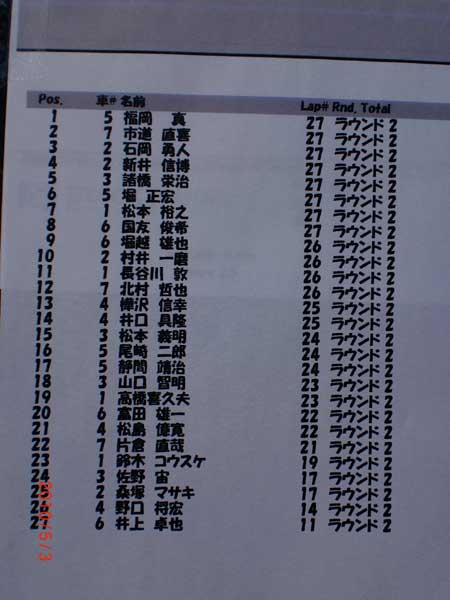 Pos. 車# 名前 Lap# Rnd. Total
1 5 福岡 真 27 ラウンド 2
2 7 市道 直喜 27 ラウンド 2
3 2 石岡 勇人 27 ラウンド 2
4 2 新井 信博 27 ラウンド 2
5 3 諸橋 栄治 27 ラウンド 2
6 5 堀 正宏 27 ラウンド 2
7 1 松本 裕之 27 ラウンド 2
8 6 国友 俊希 27 ラウンド 2
9 6 堀越 雄也 26 ラウンド 2
10 2 村井 一磨 26 ラウンド 2
11 1 長谷川 敦 26 ラウンド 2
12 7 北村 哲也 26 ラウンド 2
13 4 樺沢 信幸 25 ラウンド 2
14 4 井口 具隆 25 ラウンド 2
15 3 松本 義明 24 ラウンド 2
16 5 尾崎 二郎 24 ラウンド 2
17 5 静間 靖治 24 ラウンド 2
18 3 山口 智明 23 ラウンド 2
19 1 高橋喜久夫 23 ラウンド 2
20 6 富田 雄一 22 ラウンド 2
21 4 松島 億寛 22 ラウンド 2
22 7 片倉 直哉 21 ラウンド 2
23 1 鈴木 コウスケ 19 ラウンド 2
24 3 佐野 宙 17 ラウンド 2
25 2 桑塚 マサキ 17 ラウンド 2
26 4 野口 将宏 14 ラウンド 2
27 6 井上 卓也 11 ラウンド 2
2010/5/3